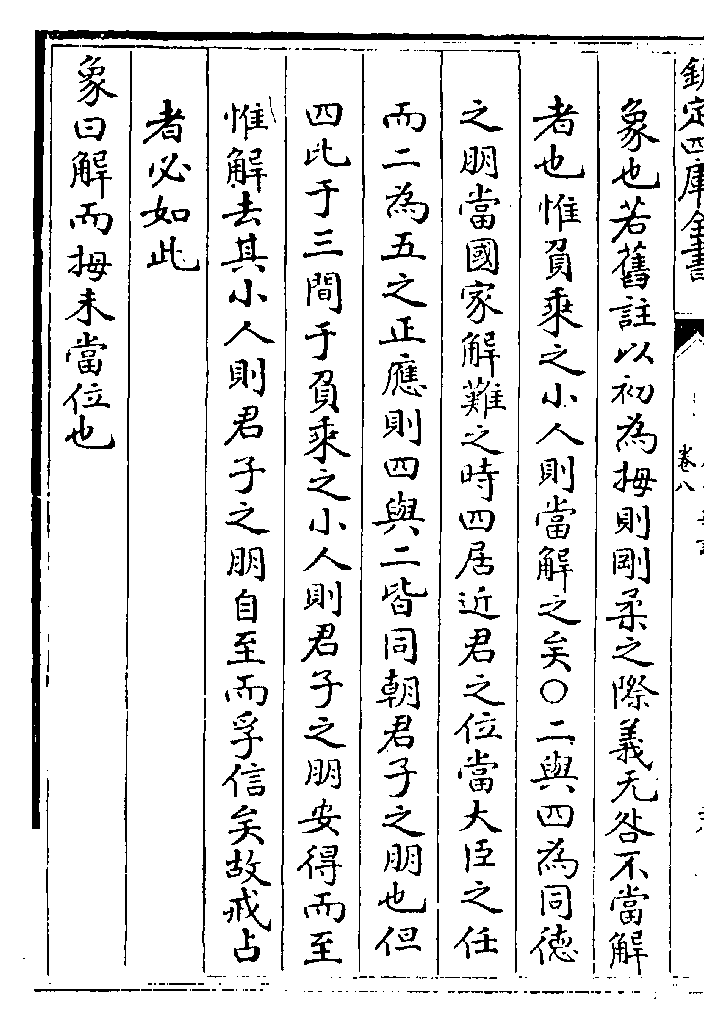 欽定四庫全書
卷八
象也若舊註以初為拇則剛柔之際義无咎不當解
者也惟負乘之小人則當解之矣○二與四為同德
之朋當國家解難之時四居近君之位當大臣之任
而二為五之正應則四與二皆同朝君子之朋也但
四比于三間于負乘之小人則君子之朋安得而至
惟解去其小人則君子之朋自至而孚信矣故戒占
者必如此
象曰解而拇未當位也